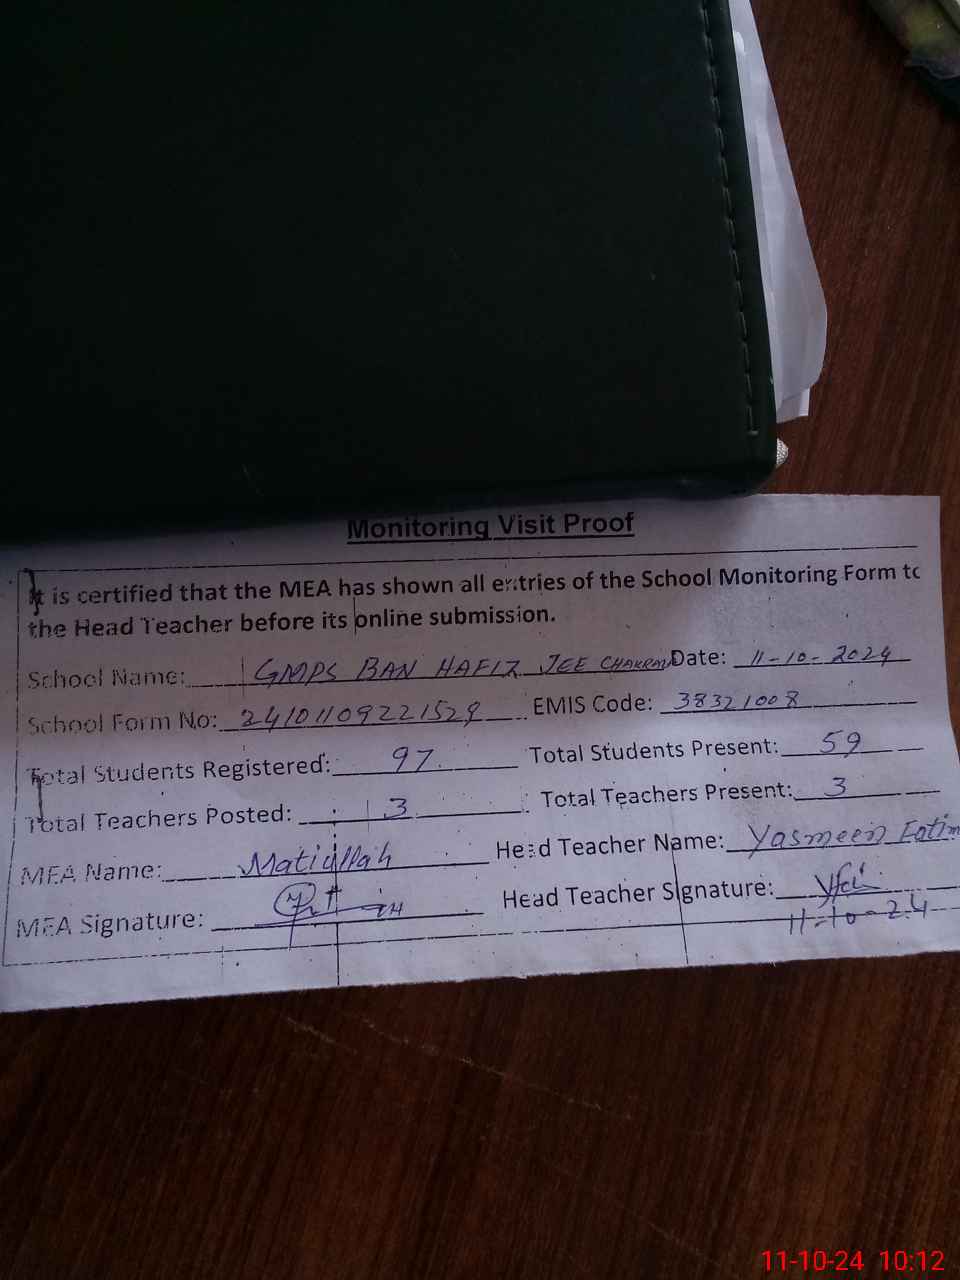 Monitoring Visit Proof
It is certified that the MEA has shown all entries of the School Monitoring Form to
the Head Teacher before its online submission.
School Name: GMPS BAN HAFIZ JEE Date: 11-10-2024
School Form No: 24101109221529 EMIS Code: 38321008
Total Students Registered: 97 Total Students Present: 59
Total Teachers Posted: 3 Total Teachers Present: 3
MEA Name: Matiullah Head Teacher Name: Yasmeen Fatim
MEA Signature: Head Teacher Signature:
11-10-24
11-10-24 10:12